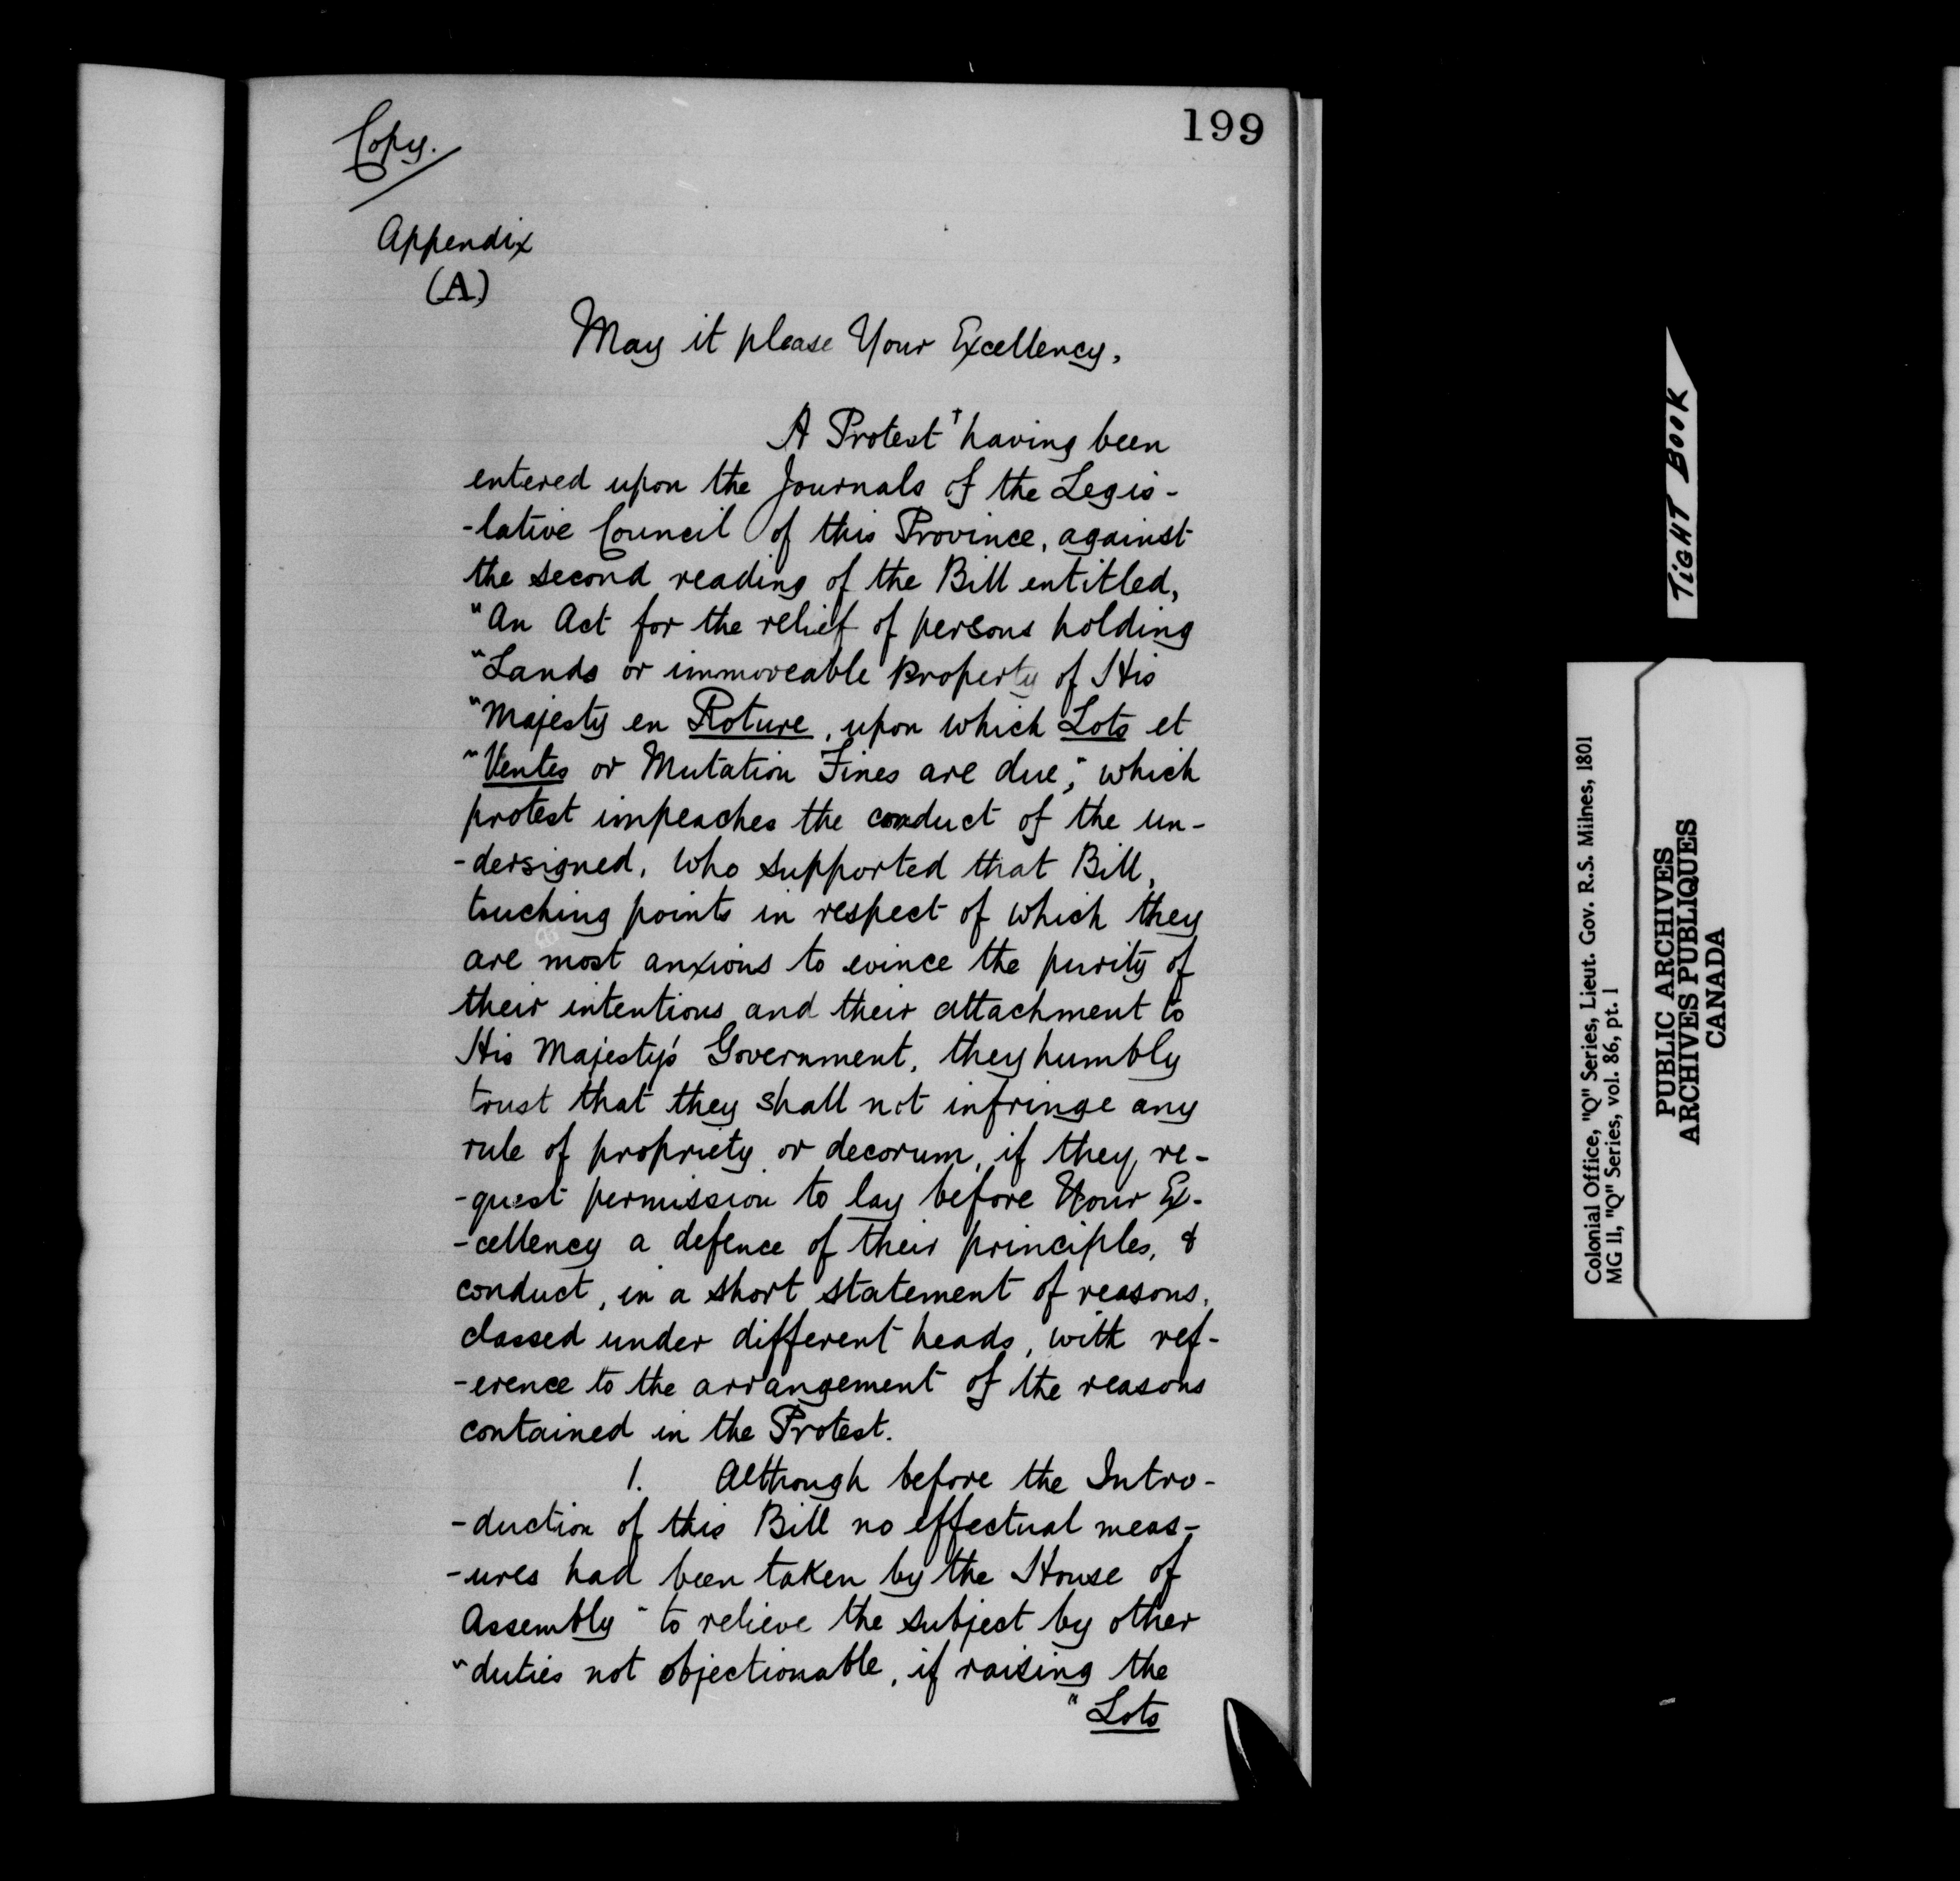 199
Copy.
Appendix
(A)
May it please Your Excellency,
A Protest † having been
entered upon the Journals of the Legis-
-lative Council of this Province, against
the second reading of the Bill entitled,
"An Act for the relief of persons holding
"Lands or immoveable Property of His
"Majesty en Roture, upon which Lots et
"Ventes or Mutation Fines are due," which
protest impeaches the conduct of the un-
-dersigned, who supported that Bill,
touching points in respect of which they
are most anxious to evince the purity of
their intentions and their attachment to
His Majesty's Government, they humbly
trust that they shall not infringe any
rule of propriety or decorum, if they re-
-quest permission to lay before Your Ex-
-cellency a defence of their principles, &
conduct, in a short statement of reasons,
classed under different heads, with ref-
-erence to the arrangement of the reasons
contained in the Protest.
1. Although before the Intro-
-duction of this Bill no effectual meas-
-ures had been taken by the House of
Assembly "to relieve the subject by other
"duties not objectionable, if raising the
"Lots
TIGHT BOOK
Colonial Office, "Q" Series, Lieut. Gov. R.S. Milnes, 1801
MG 11, "Q" Series, vol. 86, pt. 1
PUBLIC ARCHIVES
ARCHIVES PUBLIQUES
CANADA